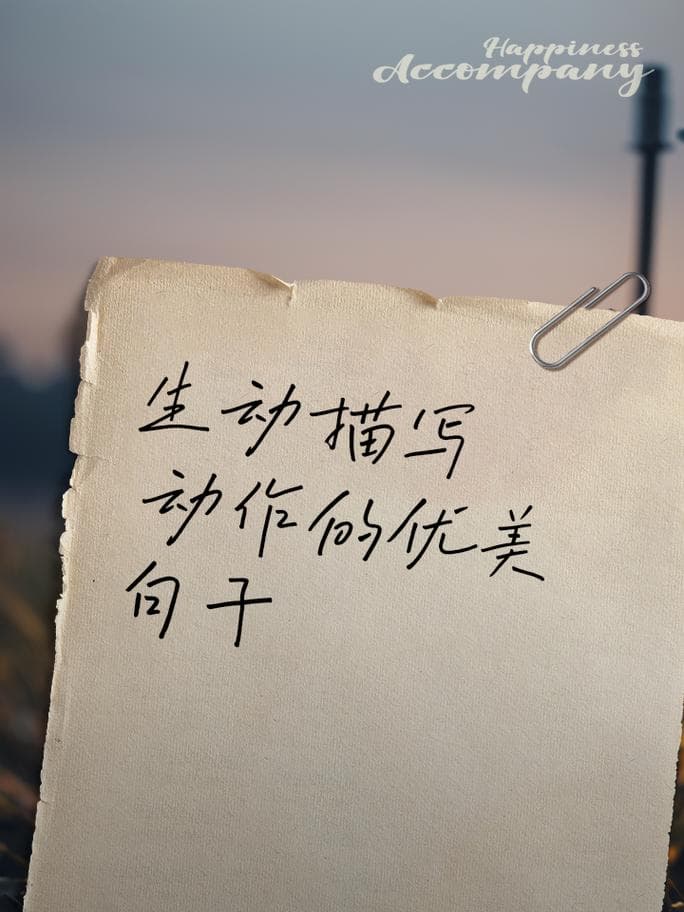 Happiness
Accompany
生动描写
动作的优美
句子